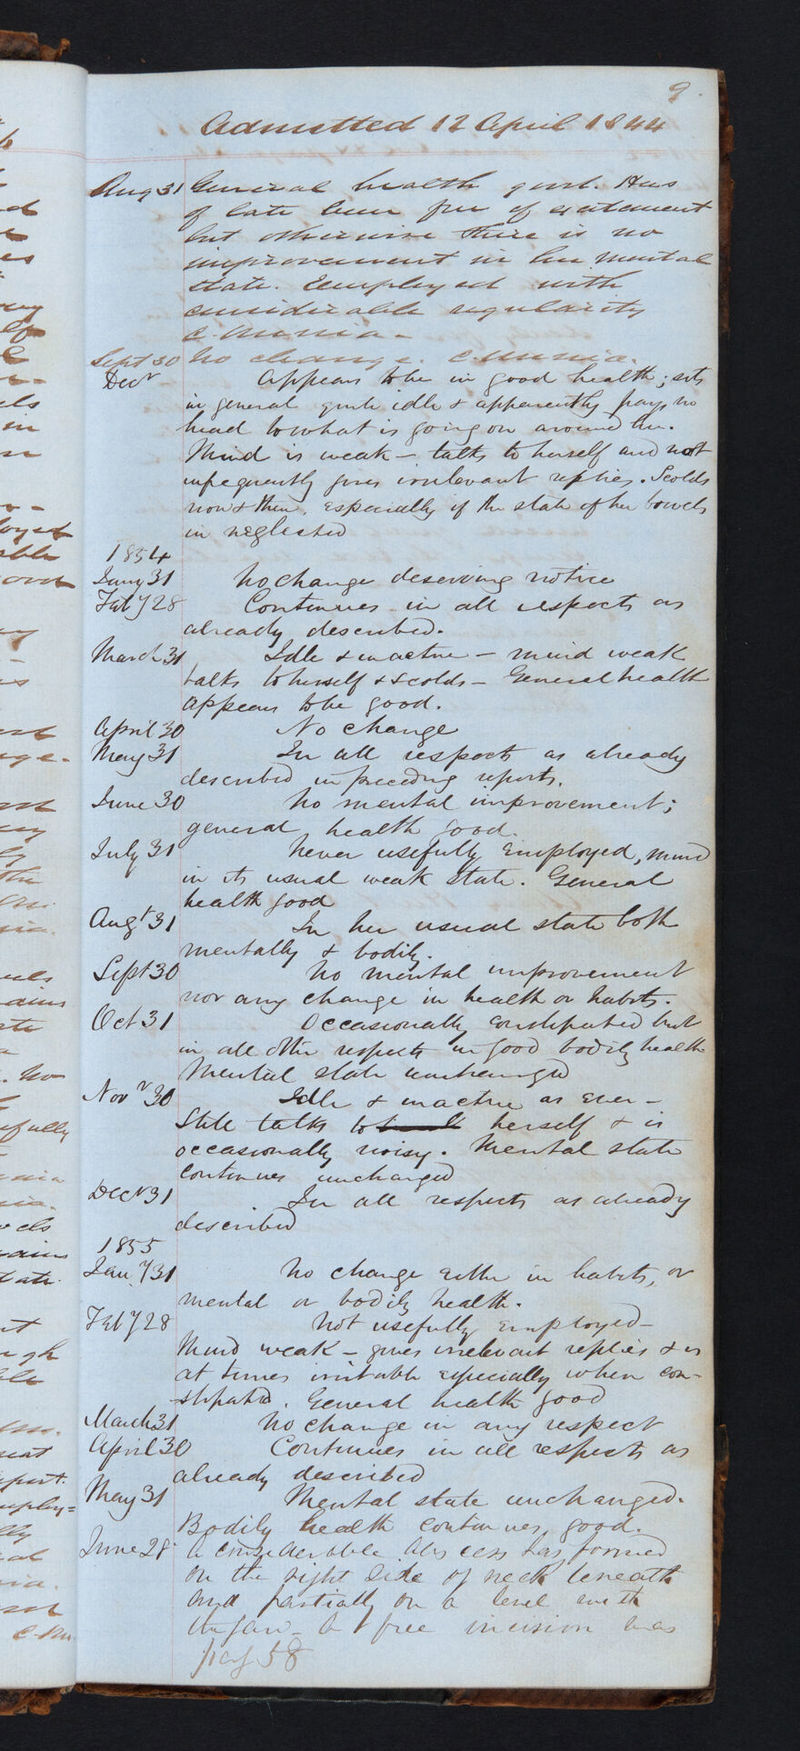 9.
Admitted 12 April 1844
Aug 31 General health good. Has
of late been free of excitement
but otherwise there is no
improvement in her mental
state. Employed with
considerable regularity
C. Mania -
Sept 30 No change. C. Mania.
Decr Appears to be in good health; sits
in general quite idle & apparently pays no
head to what is going on around her.
Mind is weak - talks to herself and not
infrequently gives irrelevant replies. Scolds
now & then, especially if the state of her bowels
in neglected
1854
Jany 31 No change deserving notice
Feby 28 Continues in all respects as
already described.
March 31 Idle & inactive - mind weak
talks to herself & scolds - General health
appears to be good.
April 30 No change
May 31 In all respects as already
described in preceding reports.
June 30 No mental improvement;
general health good.
July 31 Never usefully employed, mind
in its usual weak state. General
health good
Augt 31 In her usual state both
mentally & bodily.
Sept 30 No mental improvement
nor any change in health or habits.
Oct 31 Occasionally constipated but
in all other respects in good bodily health
Mental state unchanged
Novr 30 Idle & inactive as ever -
Still talks to herself & is
occasionally noisy. Mental state
continues unchanged
Decr 31 In all respects as already
described
1855
Jany 31 No change either in habits, or
mental or bodily health.
Feby 28 Not usefully employed -
Mind weak - gives irrelevant replies & is
at times irritable especially when con-
stipated. General health good
March 31 No change in any respect
April 30 Continues in all respects as
already described
May 31 Mental state unchanged.
Bodily health continues good.
June 28 A considerable abscess has formed
on the right side of neck beneath
and partially on a level with
the jaw - a free incision was
pag. 58